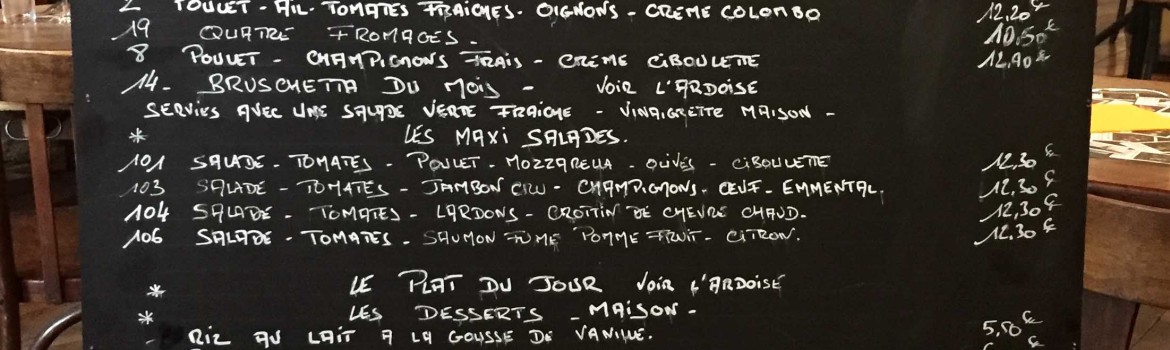 2 POULET - AIL - TOMATES FRAICHES - OIGNONS - CREME COLOMBO 12,20€
19 QUATRE FROMAGES - 10,50€
8 POULET - CHAMPIGNONS FRAIS - CREME CIBOULETTE 12,90€
14 - BRUSCHETTA DU MOIS - VOIR L'ARDOISE
SERVIES AVEC UNE SALADE VERTE FRAICHE - VINAIGRETTE MAISON -
* LES MAXI SALADES.
101 SALADE - TOMATES - POULET - MOZZARELLA - OLIVES - CIBOULETTE 12,30€
103 SALADE - TOMATES - JAMBON CRU - CHAMPIGNONS - OEUF - EMMENTAL. 12,30€
104 SALADE - TOMATES - LARDONS - CROTTIN DE CHEVRE CHAUD. 12,30€
106 SALADE - TOMATES - SAUMON FUME POMME FRUIT - CITRON. 12,30€
* LE PLAT DU JOUR VOIR L'ARDOISE
* LES DESSERTS - MAISON -
- RIZ AU LAIT A LA GOUSSE DE VANILLE. 5,50€